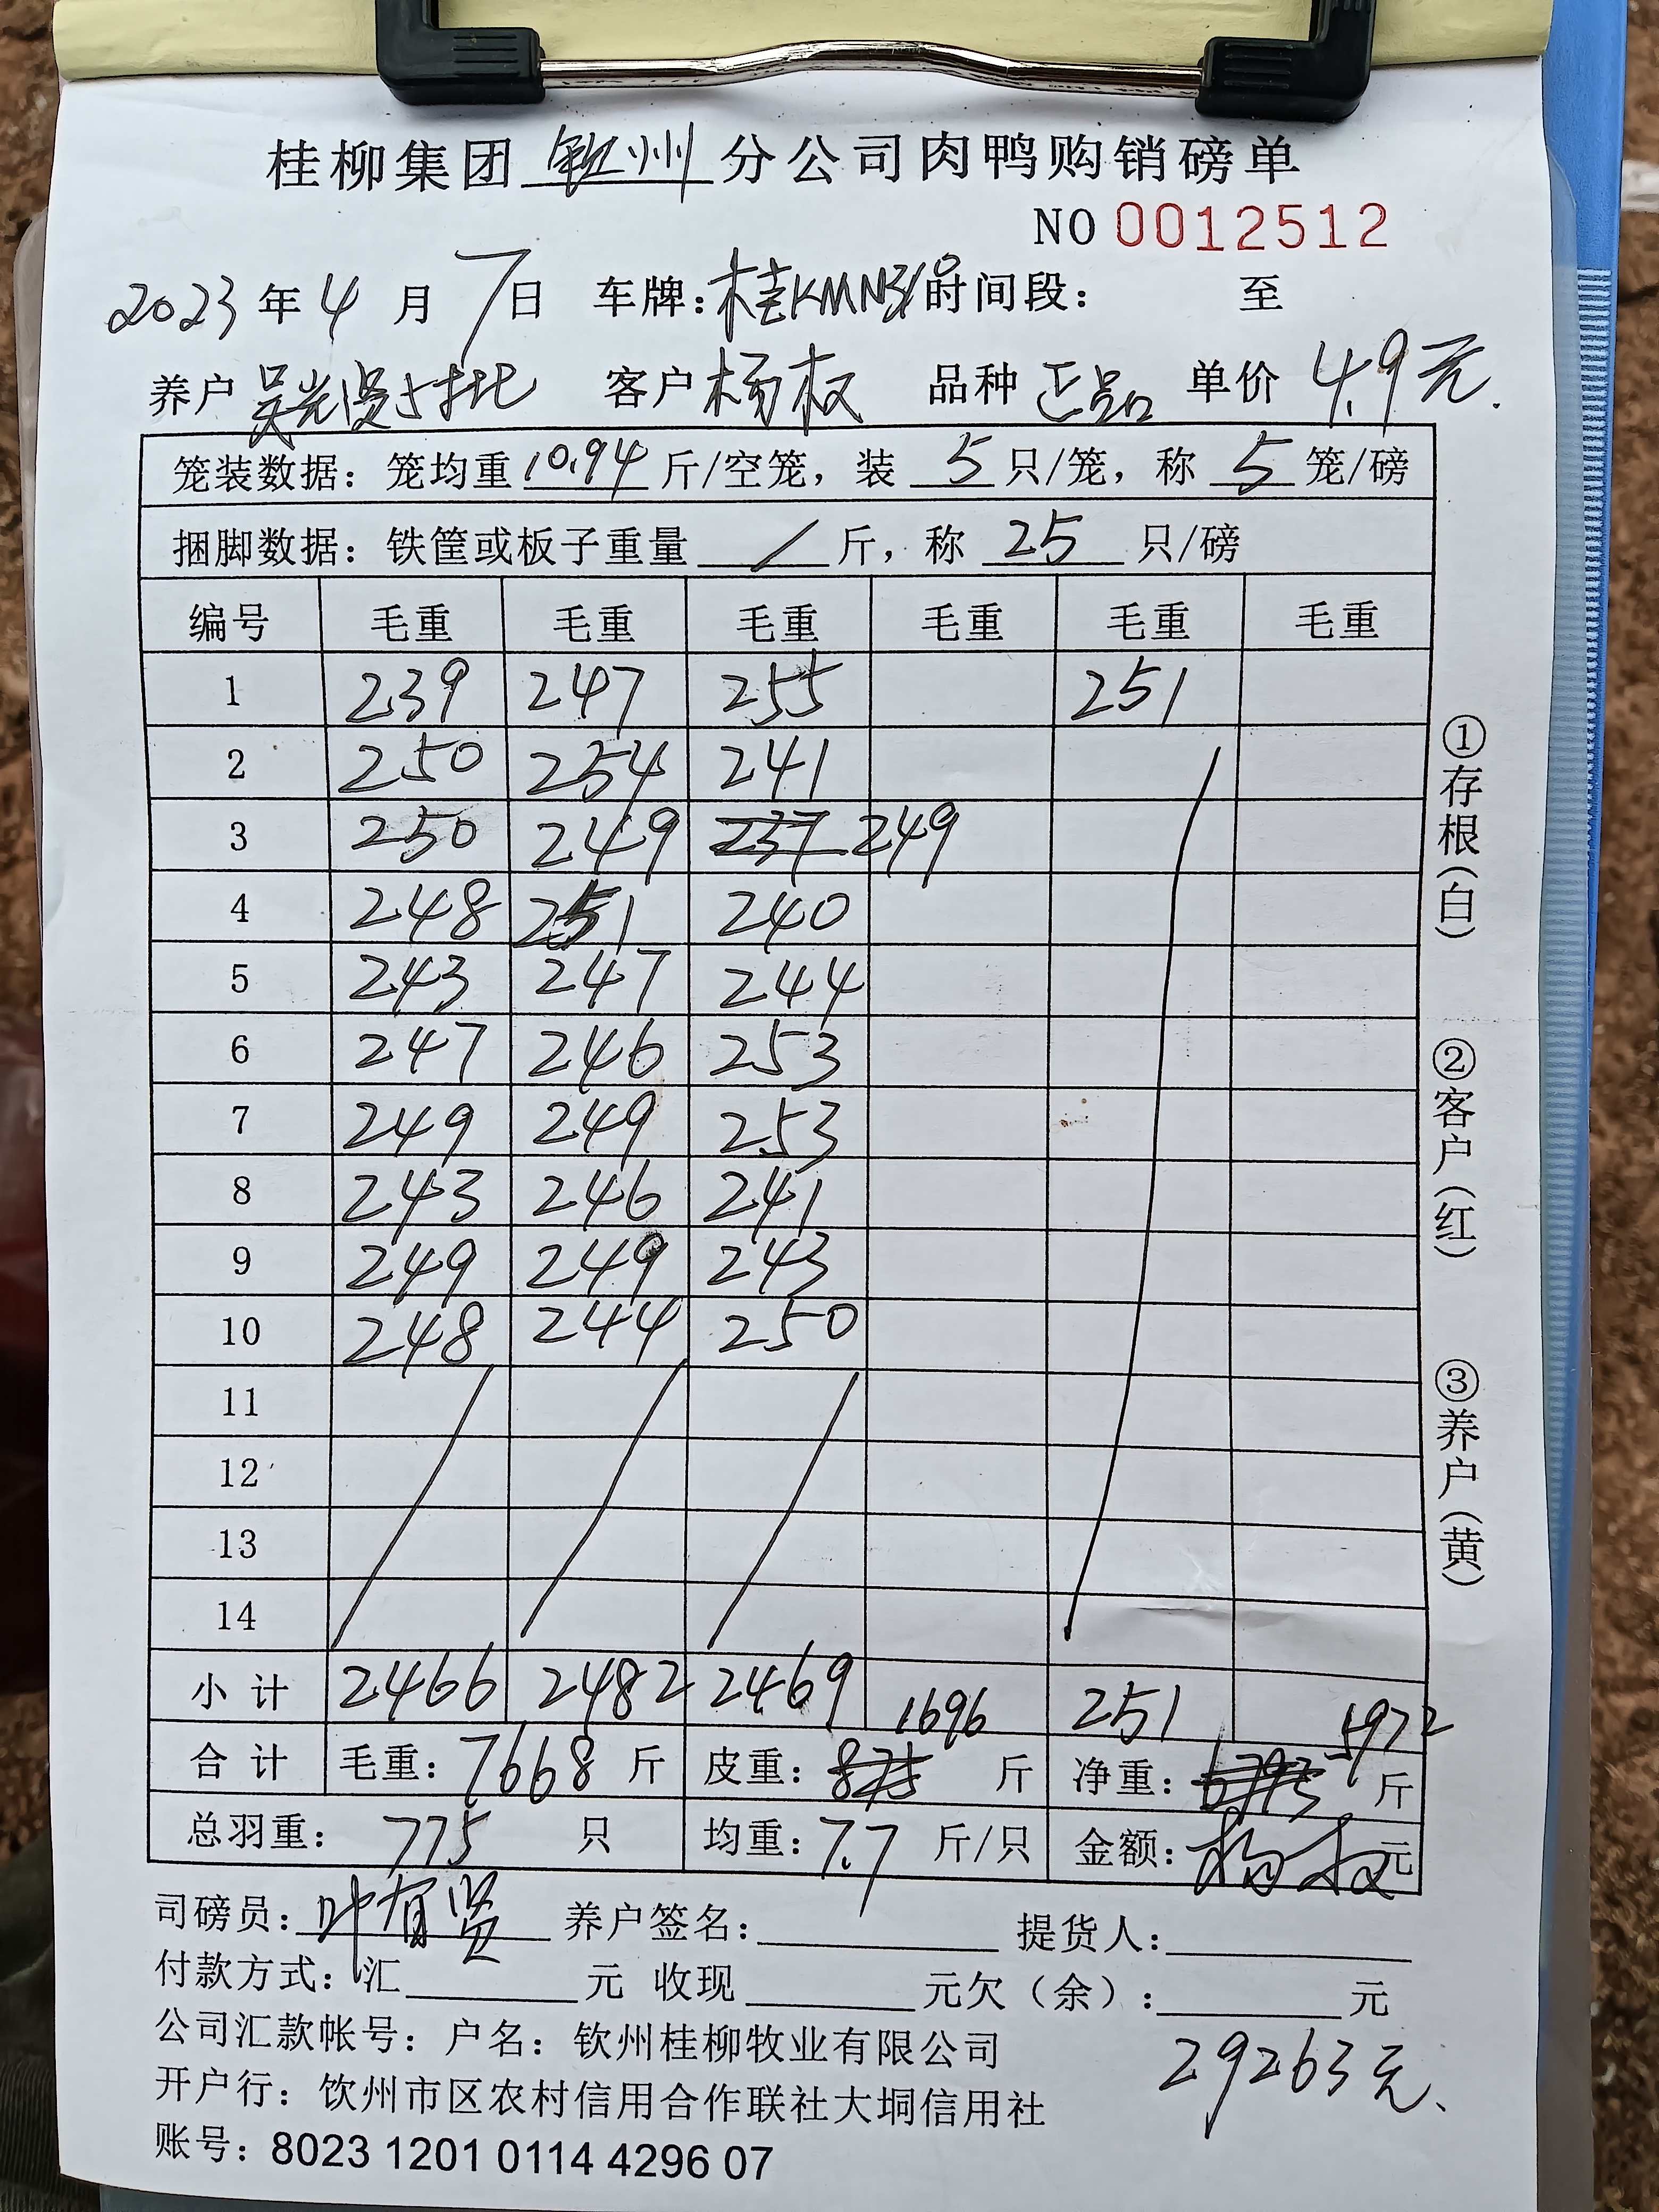 桂柳集团 钦州 分公司肉鸭购销磅单
NO 0012512
2023 年 4 月 7 日 车牌: 桂KMN 时间段: 至
养户 吴光贤 批 客户 杨权 品种 正品 单价 4.9元.
笼装数据: 笼均重 10.94 斤/空笼, 装 5 只/笼, 称 5 笼/磅
捆脚数据: 铁筐或板子重量 / 斤, 称 25 只/磅
编号 毛重 毛重 毛重 毛重 毛重 毛重
1 239 247 255 251
2 250 254 241
3 250 249 237 249
4 248 251 240
5 243 247 244
6 247 246 253
7 249 249 253
8 243 246 241
9 249 249 243
10 248 244 250
11
12
13
14
小计 2466 2482 2469 251
合计 毛重: 7668 斤 皮重: 875 1696 斤 净重: 5972 斤
总羽重: 775 只 均重: 7.7 斤/只 金额: 杨权 元
司磅员: 叶有贤 养户签名: 提货人:
付款方式: 汇 元 收现 元欠（余）: 元
公司汇款帐号: 户名: 钦州桂柳牧业有限公司
29263元
开户行: 钦州市区农村信用合作联社大垌信用社
账号: 8023 1201 0114 4296 07
①存根(白)
②客户(红)
③养户(黄)